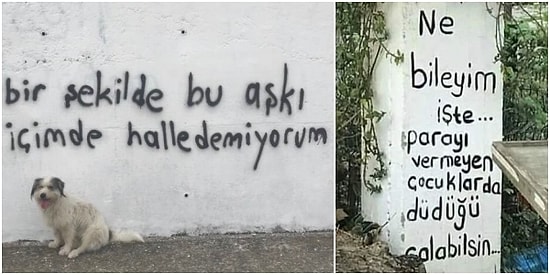 bir şekilde bu aşkı
içimde halledemiyorum
Ne
bileyim
işte...
parayı
vermeyen
çocuklarda
düdüğü
çalabilsin...